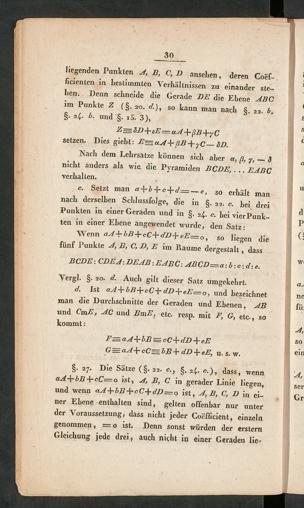 30
liegenden Punkten A, B, C, D ansehen, deren Coëf-
ficienten in bestimmten Verhältnissen zu einander ste-
hen. Denn schneide die Gerade DE die Ebene ABC
im Punkte Z (§. 20. d.), so kann man nach §. 22. b,
§. 24. b. und §. 15. 3),
Z≡δD+εE≡αA+βB+γC
setzen. Dies giebt: E≡αA+βB+γC−δD.
Nach dem Lehrsatze können sich aber α, β, γ, −δ
nicht anders als wie die Pyramiden BCDE, ... EABC
verhalten.
c. Setzt man a+b+c+d=−e, so erhält man
nach derselben Schlussfolge, die in §. 22. c. bei drei
Punkten in einer Geraden und in §. 24. c. bei vier Punk-
ten in einer Ebene angewendet wurde, den Satz:
Wenn aA+bB+cC+dD+eE=0, so liegen die
fünf Punkte A, B, C, D, E im Raume dergestalt, dass
BCDE:CDEA:DEAB:EABC:ABCD=a:b:c:d:e.
Vergl. §. 20. d. Auch gilt dieser Satz umgekehrt.
d. Ist aA+bB+cC+dD+eE=0, und bezeichnet
man die Durchschnitte der Geraden und Ebenen, AB
und CDE, AC und BDE, etc. resp. mit F, G, etc., so
kommt:
F≡aA+bB≡cC+dD+eE
G≡aA+cC≡bB+dD+eE, u. s. w.
§. 27. Die Sätze (§. 22. c., §. 24. c.), dass, wenn
aA+bB+cC=0 ist, A, B, C in gerader Linie liegen,
und wenn aA+bB+cC+dD=0 ist, A, B, C, D in ei-
ner Ebene enthalten sind, gelten offenbar nur unter
der Voraussetzung, dass nicht jeder Coëfficient, einzeln
genommen, =0 ist. Denn sonst würden der erstern
Gleichung jede drei, auch nicht in einer Geraden lie-